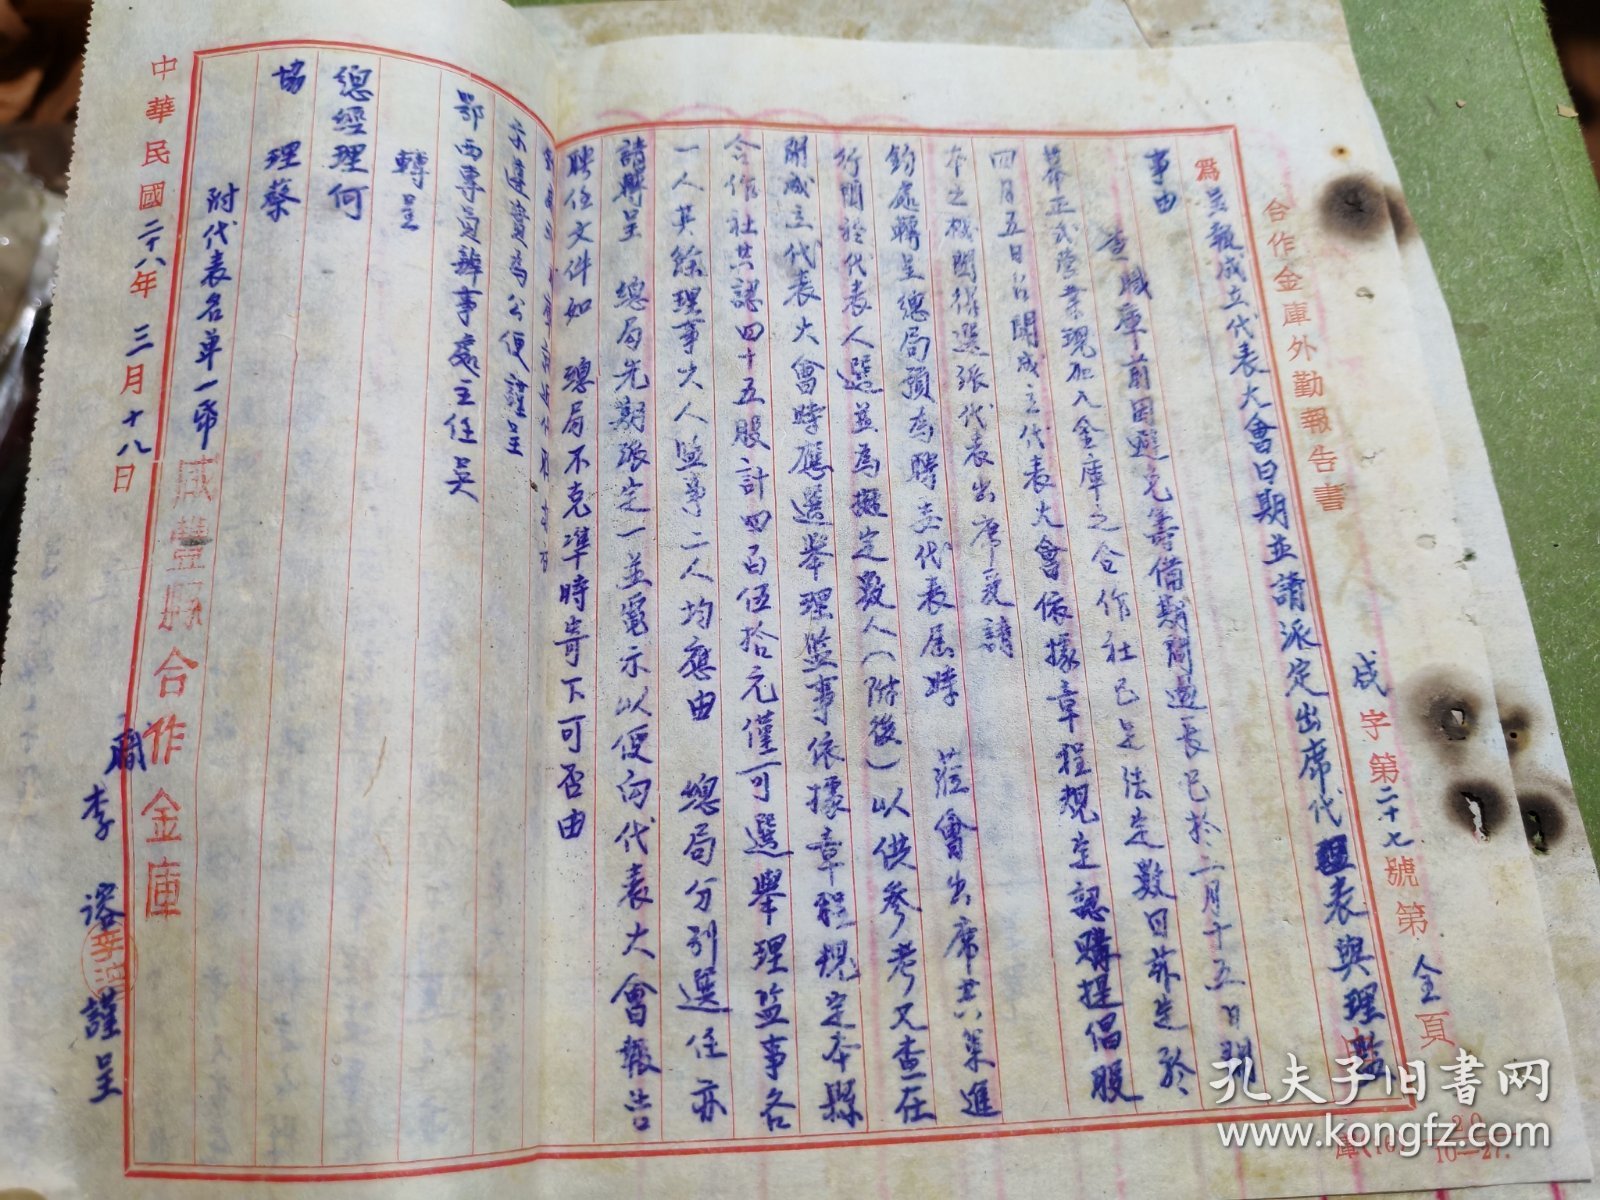 合作金庫外勤報告書
咸字第二十七號第全頁
為呈報成立代表大會日期並請派定出席代表與理監
事由
查職庫前因避免籌備期間過長已於二月十五日開
幕正式營業現加入金庫之合作社已足法定數目茲定於
四月五日召開成立代表大會依據章程規定認購提倡股
本之機關得選派代表出席爰請
鈞處轉呈總局預為聘立代表屆時蒞會出席共策進
行關於代表人選並為擬定數人(附後)以供參考又查在
開成立代表大會時應選舉理監事依據章程規定本縣
合作社共認四十五股計四百伍拾元僅可選舉理監事各
一人其餘理事六人監事二人均應由 總局分別選任亦
請轉呈 總局先期派定一並電示以便向代表大會報告
聘任文件如 總局不克準時寄下可否由
示遵實為公便謹呈
鄂西專員辦事處主任吳
轉呈
總經理何
協理蔡
附代表名單一帋
咸豐縣合作金庫
李 謹呈
中華民國二十八年三月十八日
庫(16) 20 10—27.
孔夫子旧書网
www.kongfz.com